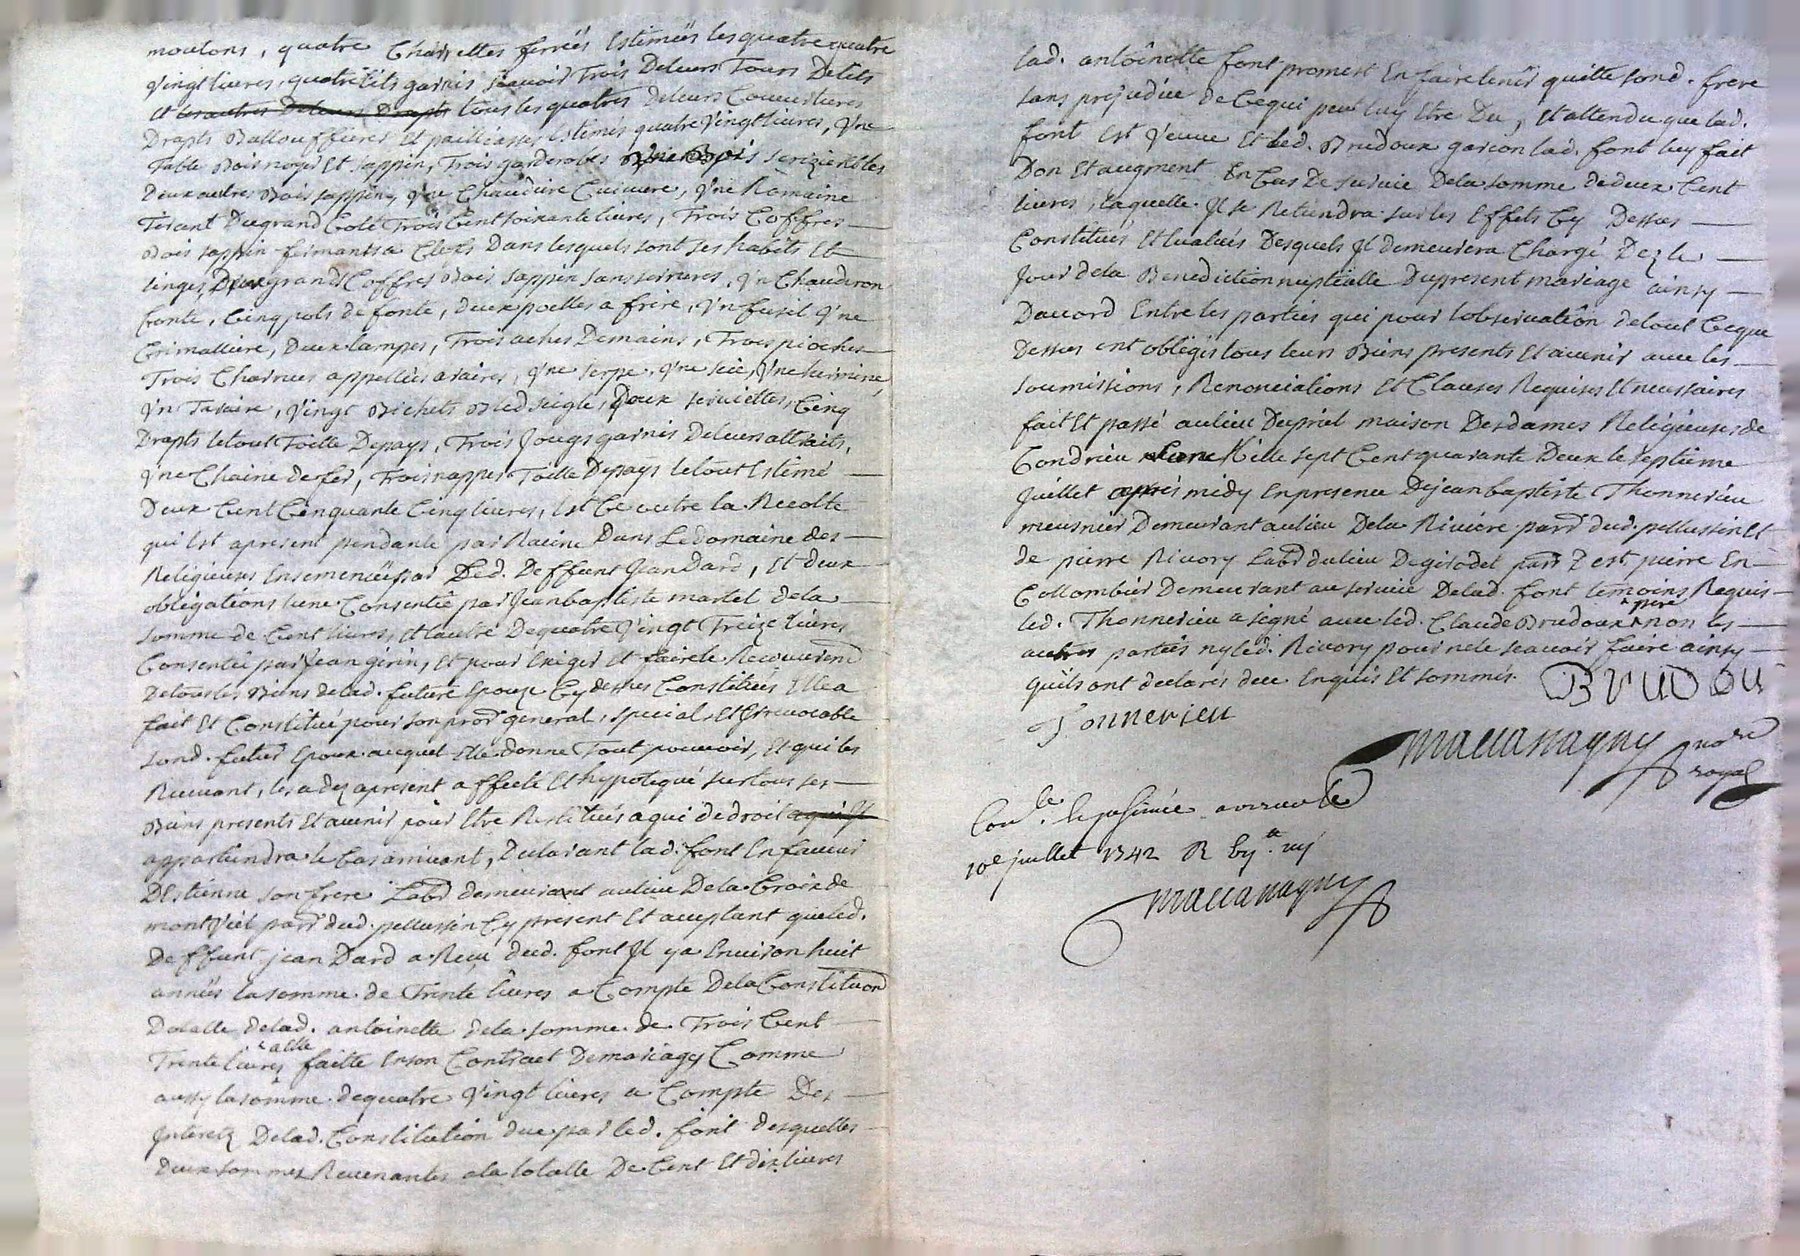 moutons, quatre Charrettes ferrées Estimées les quatre quatre
vingt livres, quatre lits garnis scavoir Trois De leurs Tours De lits
Et les autres De leurs Drapts tous les quatres de leurs Couvertures
Drapts Ballouffieres Et pailliasses Estimés quatre vingt livres, vne
Table Bois noyer Et sappin, Trois garderobes
Deux autres Bois sappin, vne Chaudiere Cuivre, vne Romaine
Tirant Du grand Coté Trois Cent soixante livres, Trois Coffres
Bois sappin fermants a Clefs Dans lesquels sont ses habits Et
linges, Deux grands Coffres Bois sappin sans serrures, vn Chauderon
fonte, Cinq pots de fonte, Deux poelles a frire, vn fusil vne
Crimalliere, Deux lampes, Trois aches Demains, Trois pioches
Trois Charrues appellées araires, vne serpe, vne scie,
vn Taraire, vingt Bichets Bled seigle, Deux serviettes, Cinq
Drapts le tout Toille De pays, Trois Jougs garnis De leurs attraits,
vne Chaine de fer, Trois nappes Toille De pays le tout Estimé
Deux Cent Cinquante Cinq livres, Est Ce outre la Recolte
qui Est apresent pendante par Racine Dans Le domaine des
Religieuses Ensemencée par Led. Deffunt Jean Dard, Et deux
obligations lune Consentie par Jean baptiste martel de la
somme de Cent livres, Et lautre De quatre vingt Treize livres
Consentie par Jean girin, Et pour Exiger Et faire le Recouvremt
De tous les Biens de lad. future Epouse Cy dessus Constitués Elle a
fait Et Constitué pour son procr general, special, Et Irrevocable
sond. futur Epoux auquel Elle donne Tout pouvoir, Et qui les
Recevant, les a dez apresent affecté Et hypotequé sur tous ses
Biens presents Et avenir pour Etre Restitués a qui de droit a qui Il
appartiendra le Cas arrivant, Declarant lad. font En faveur
DEstienne son frere Labr demeurant au lieu De la Croix de
montviel parr dud. pellussin Cy present Et acceptant que led.
Deffunt jean Dard a Receu dud. font Il y a Environ huit
années la somme de Trente livres a Compte De la Constitution
Dotalle de lad. antoinette de la somme de Trois Cent
Trente livres a elle faitte En son Contract De mariage, Comme
aussy la somme de quatre vingt livres a Compte Des
Interetz De lad. Constitution due par led. font desquelles
deux sommes Revenantes a la totalle De Cent Et dix livres
lad. antoinette font promest En faire tenir quitte sond. frere
sans prejudice de Ce qui peut luy Etre Du, Et attendu que lad.
font Est veuve Et led. Brudoux garcon lad. font luy fait
Don Et augment En Cas De survie De la somme de deux Cent
livres, laquelle Il se Retiendra sur les Effets Cy Dessus
Constitués Et Evalués Desquels Il demeurera Chargé Dez le
Jour de la Benediction nuptialle Du present mariage ainsy
Daccord Entre les parties qui pour lobservation de tout Ce que
Dessus ont obligés tous leurs Biens presents Et avenir avec les
soumissions, Renonciations Et Clauses Requises Et necessaires
fait Et passé au lieu Duprel maison Des dames Religieuses de
Condrieu Mille sept Cent quarante Deux le septieme
Juillet apres midy En presence De jean baptiste Thonnerieu
meusnier Demeurant au lieu De la Riviere parr dud. pellussin Et
de pierre Rivory Labr du lieu De girodet parr De st. pierre En
Collombier Demeurant au service De lad. font temoins Requis
led. Thonnerieu a signé avec led. Claude Brudoux pere non les
autres parties ny led. Rivory pour ne le scavoir faire ainsy
quils ont declarés de ce Enquis Et sommés. BRUDOU
Tonnerieu
Maccanagny nore
royal
10e juillet 1742
Maccanagny